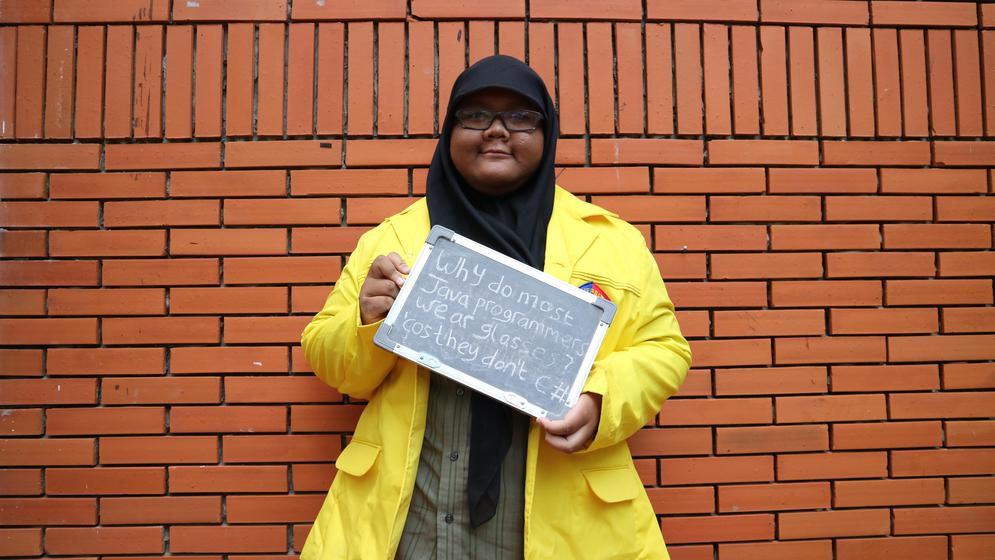 Why do most
Java programmers
wear glasses?
'cos they don't C#